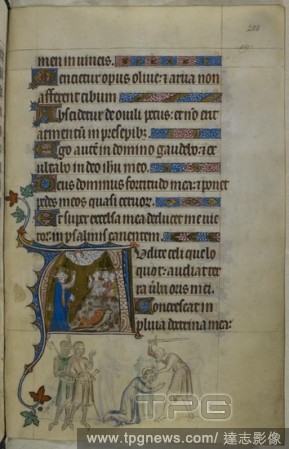 men in vineis.
Mencietur opus olive: et arva non
afferent cibum
Abscidetur de ovili pecus: et nō erit
armentū in presepibz.
Ego autē in domino gaudebo: et
ultabo in deo ihu meo.
Deus dominus fortitudo mea: et ponet
pedes meos quasi cervor.
Et super excelsa mea deducet me vic
tor: in psalmis canentem.
Audite celi que lo
quor: audiat ter
ra v̄ba oris mei.
Concrescat in
pluvia doctrina mea:
TPG
www.tpgnews.com/ 達志影像